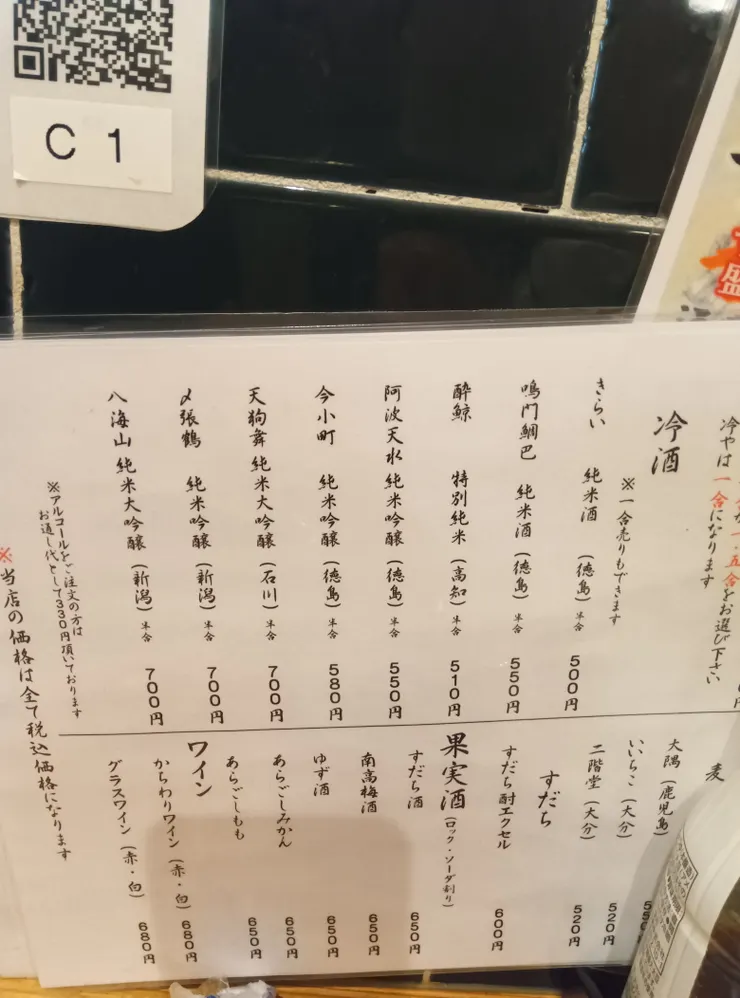 C 1
冷やは一合になります
一・五合をお選び下さい
冷酒
※一合売りもできます
きらい 純米酒 (徳島) 半合 500円
鳴門鯛巴 純米酒 (徳島) 半合 550円
酔鯨 特別純米 (高知) 半合 510円
阿波天水 純米吟醸 (徳島) 半合 550円
今小町 純米吟醸 (徳島) 半合 580円
天狗舞 純米大吟醸 (石川) 半合 700円
〆張鶴 純米吟醸 (新潟) 半合 700円
八海山 純米大吟醸 (新潟) 半合 700円
※アルコールをご注文の方は
お通し代として330円頂いております
麦
大隅 (鹿児島)
いいちこ (大分) 520円
二階堂 (大分) 520円
すだち
すだち酎エクセル 600円
果実酒 (ロック・ソーダ割り)
すだち酒 650円
南高梅酒 650円
ゆず酒 650円
あらごしみかん 650円
あらごしもも 650円
ワイン
かちわりワイン (赤・白) 680円
グラスワイン (赤・白) 680円
※当店の価格は全て税込価格になります
盛